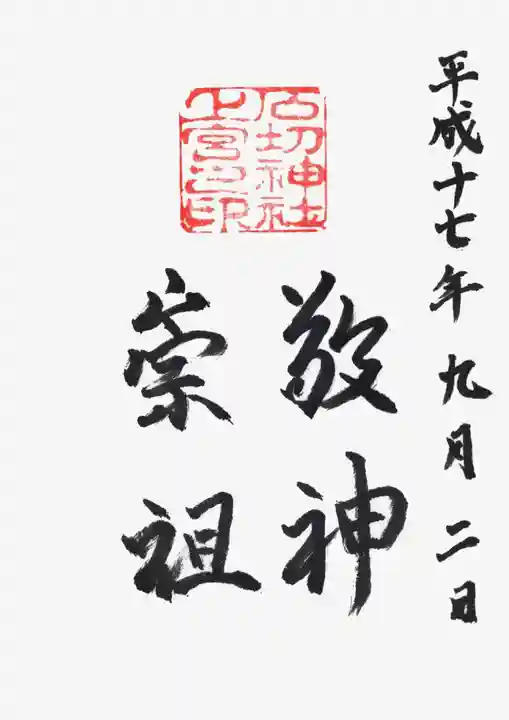 平成十七年九月二日
石切神社
上宮之印
敬神
崇祖